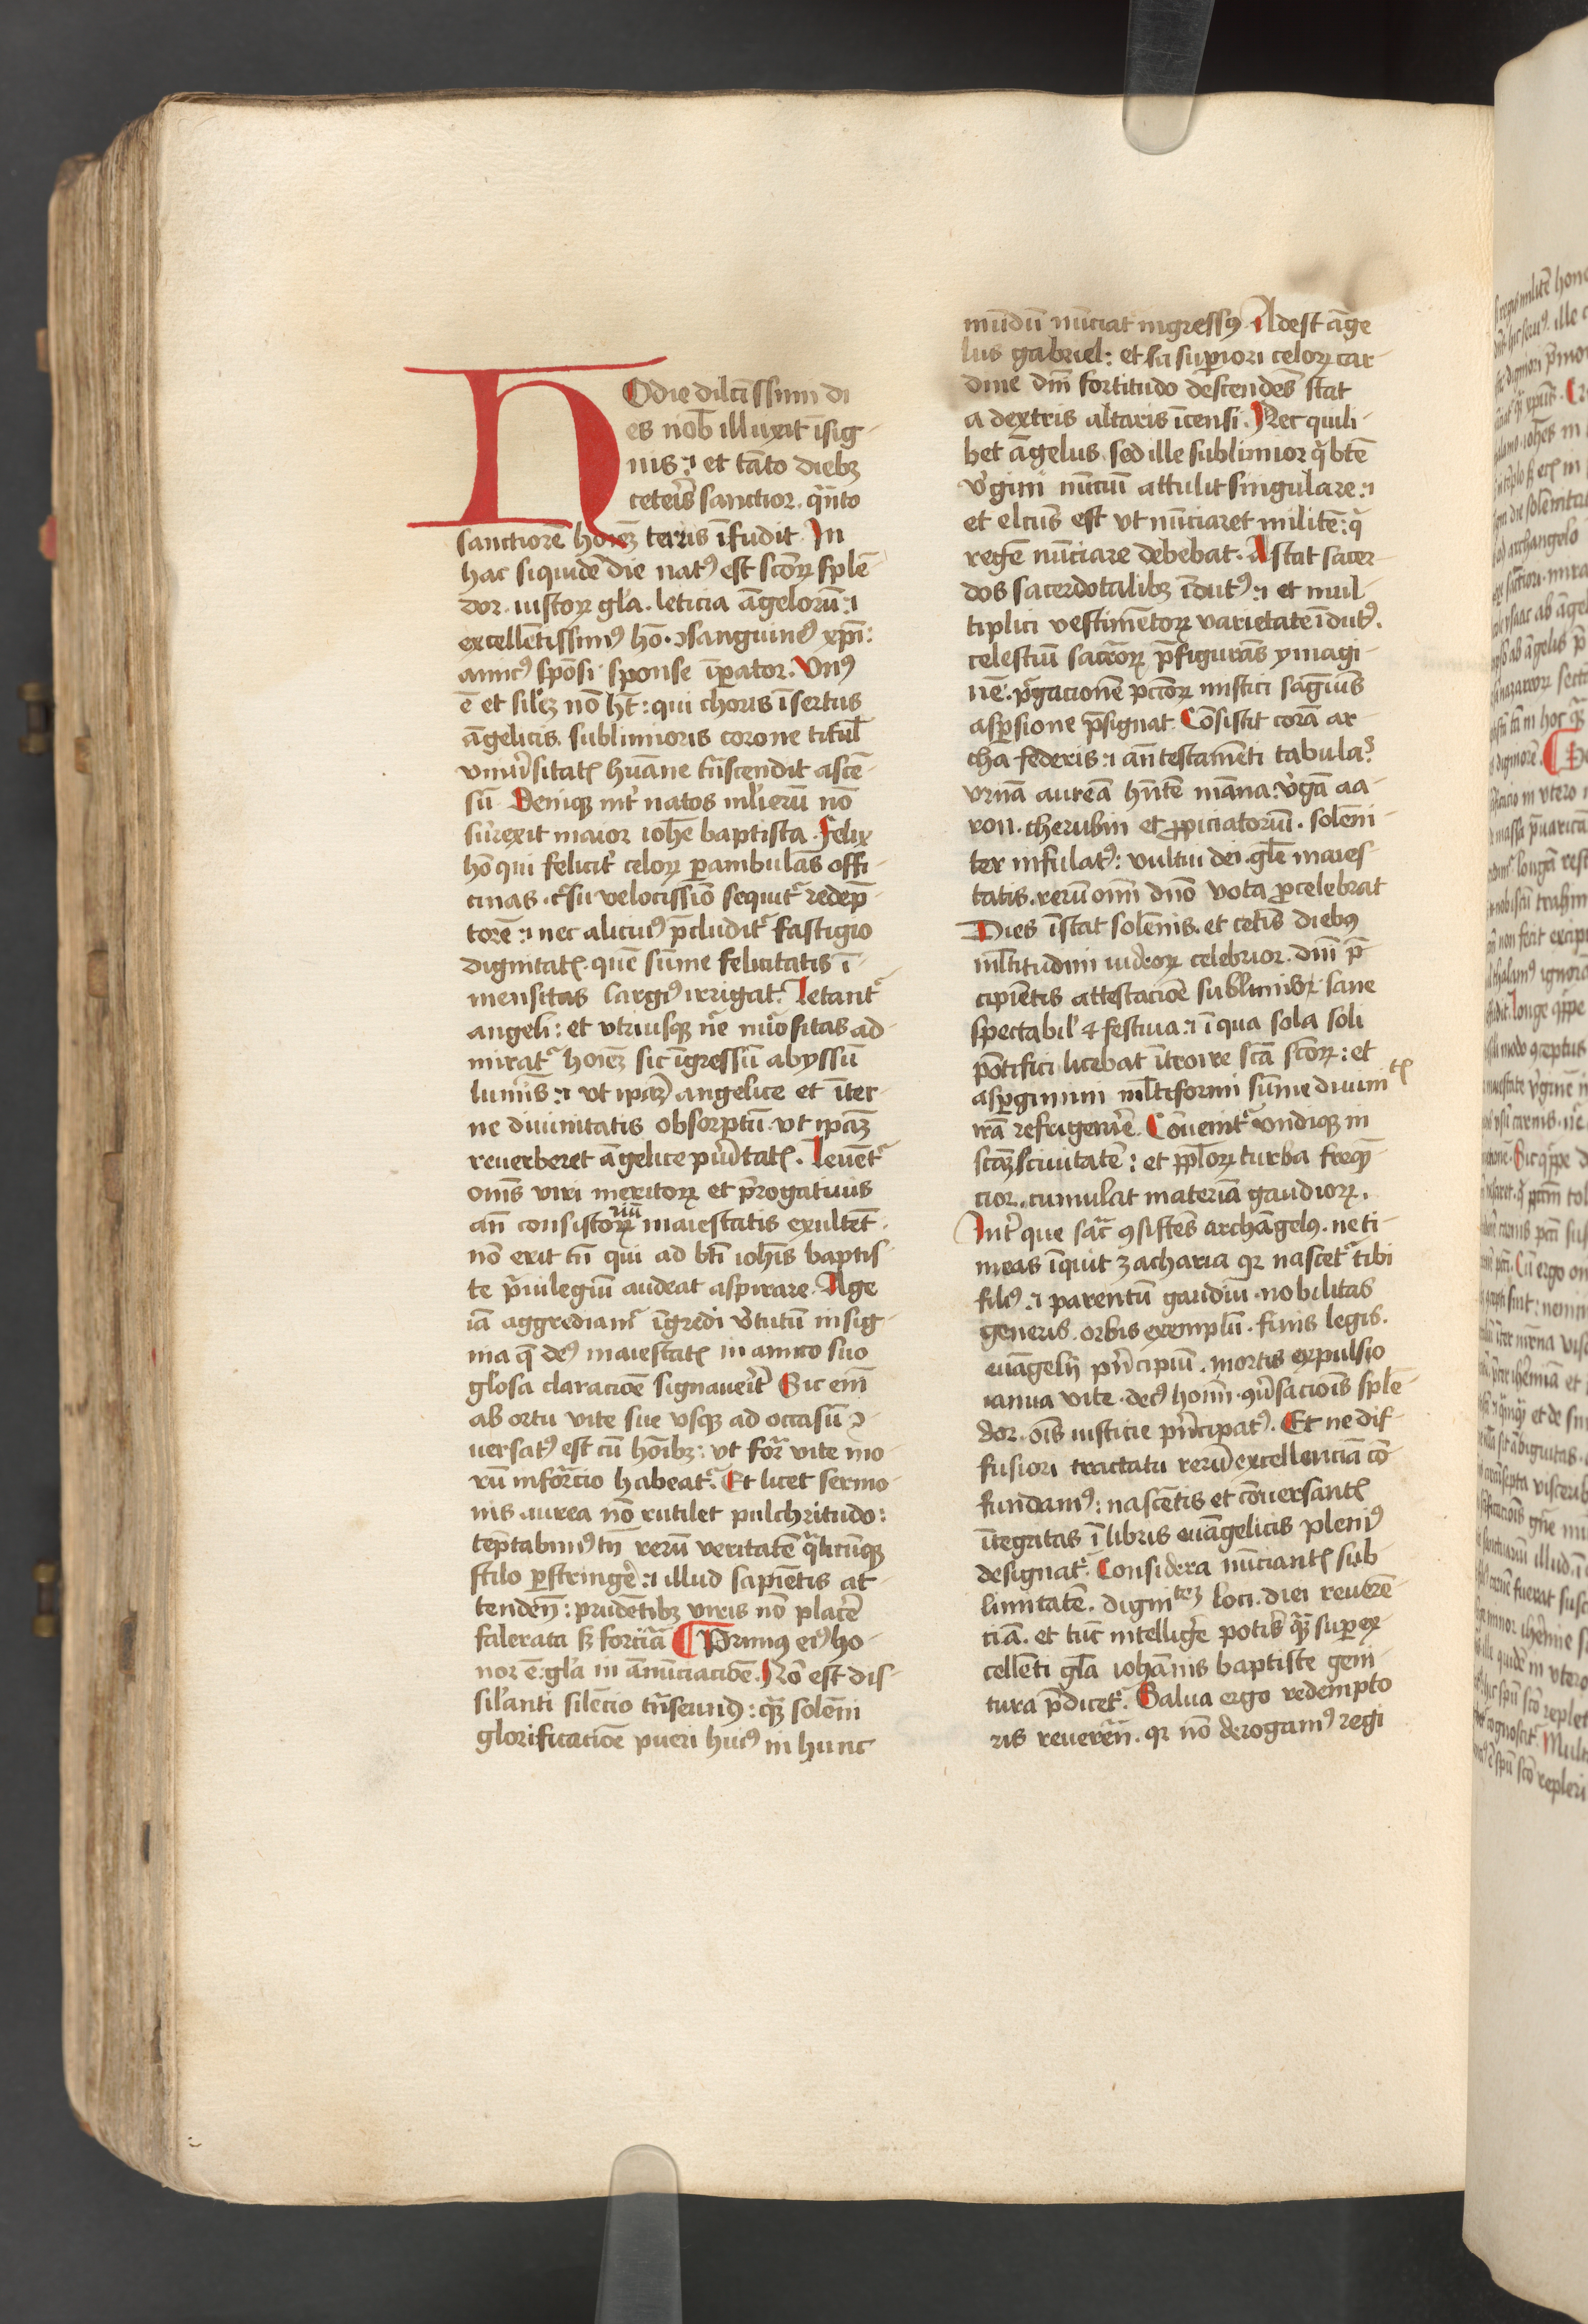 Hodie dilcī ssimi di
es nob̄ illuxit īsig-
nis :⁊ et tāto diebꝫ
ceteīs sanctior . qͣnto
sanctiorē hoīeꝫ terris īfudit . In
hac siquidē die natꝰ est scōrꝫ splē-
dor . iustoꝝ gl̓a . leticia āgelorū :⁊
excellētissimꝰ hō . ↄsanguinēꝰ xp̄i :
amicꝰ spōsi sponse īꝑator . Vnꝰ
ē et sil̓eꝫ nō hꝫ : qui choris īsertus
āgelicis . sublimioris corone titul̓
vniūsitatꝭ hūane tn̄scendit ascē-
sū . Deniqꝫ int̓ natos ml̓ierū nō
surrexit maior ioh̄e baptista . Felix
hō qui felicit̓ celoꝝ ꝑambulās offi-
cinas . cͬsu velocissīo sequitͬ redēp-
torē :⁊ nec alicuiꝰ p̄cluditͬ fastigio
dignitatꝭ . quē sūme felicitatis ī-
mensitas largiꝰ irrigat . Letantͬ
angeli : et vtriusqꝫ nͬe nūositas ad-
miratͬ hoīeꝫ sic īgressū abyssū
lumīs :⁊ vt ipaꝫ angelice et īter-
ne diuinitatis obsorptū . vt ipaꝫ
reuerberet āgelice pūitatꝭ . Leuētͬ
om̄s viri meritoꝝ et p̄rogatiuis
an̄ consistoriū maiestatis exultēt .
nō erit tn̄ qui ad bt̄i ioh̄is baptis-
te pͥuilegiū audeat aspirare . Age
iā aggrediamͬ īgredi v̓tutū insig-
nia q̄ deꝰ maiestatꝭ in amico suo
gl̓osa claracīōe signauēit̓ Sic em̄
ab ortu vite sue vsqꝫ ad occasū ↄ-
uersatꝰ est cū hōibꝫ : vt forͣ vite mo-
rū informͣcio habeatͬ . Et licet sermo-
nis aurea nō rutilet pulchritudo :
tēptabimꝰ tn̄ rerū veritatē qͣlicūqꝫ
stilo ꝑstringe̓ :⁊ illud sapiētis at-
tenden̄ : prudētibꝫ viris nō place̓
falerata sꝫ forcia ¶ Primꝰ eiꝰ ho-
nor ē . gl̓a in ānūciacīōe . Nō est dis-
sil̓anti silēcio tn̄seundꝰ : qͣꝫ solēni
glorificacīōe pueri huiꝰ in hunc
mūdū nūciat ingressꝰ . Adest āge
lus gabriel : et sa suꝑiori celoꝝ car-
dine dn̄i fortitudo descendēs stat
a dextris altaris īcensi . Nec quili-
bet āgelus . sed ille sublimior q̓ btē
v̓gini nūciū attulit singulare :⁊
et elcūs est vt nūciaret militē : qͥ
regē nūciare debebat . Astat sacer-
dos sacerdotalibꝫ īdutꝰ :⁊ et mul-
tiplici vestimētoꝝ varietate īdutꝰ .
celestiū sacͣrōꝝ p̄figurās ymagi-
nē . pͬgacionē pctōꝝ mistici sāguīs
asꝑsione p̄signat . Cōsistit corā ar-
cha federis :⁊ an̄ testamēti tabulaˢ
vrnā aureā hn̄tē māna . v̓gā aa-
ron . cherubin et ꝓpiciatoriū . solēni-
ter infulatꝰ : vultui dei . gl̄e maies-
tatis . rerū oīm dn̄o vota ꝑcelebrat
Dies īstat solēnis . et cet̓is diebꝰ
ml̓titudini iudeoꝝ celebrior . dn̄i p̄-
cipiētis attestacīōe sublimior sane
spectabil̓ ⁊ festiua :⁊ ī qua sola soli
pōtifici licebat ītroire scā scōꝝ : et
asꝑgimini ml̓tiformi sūme diuinitꝭ
irā refrigerāre . Cōuenitͬ vndiqꝫ in
scāꝫ ciuitatē : et ppl̓oꝝ turba freqn̄-
cior . cumulat materiā gaudioꝝ .
Int̓ que sacͣ ꝯsistēs archāgelꝰ . ne ti-
meas īquit zacharia qꝛ nascetͬ tibi
filiꝰ :⁊ parentū gaudiū . nobilitas
generis . orbis exemplū . finis legis .
euāgelij pn̓cipiū . mortis expulsio
ianua vite . decꝰ homī . ꝯūsacīōis splē-
dor . oīs iusticie pn̓cipatꝰ . Et ne dif-
fusiori tractatu rerū excellenciā cō-
fundamꝰ : nascētis et cōuersantꝭ
ītegͥtas ī libris euāgelicis pleniꝰ
designatͬ . Considera nūciantꝭ sub-
limitatē . dignitēꝫ loci . diei reuerē-
ciā . et tūc intellige̓ potis̓ qͣꝫ super ex-
cellēti gl̄a iohānis baptiste geni-
tura p̄dicetͬ . Salua ergo redempto
ris reueren̄ . qꝛ nō derogamꝰ regi